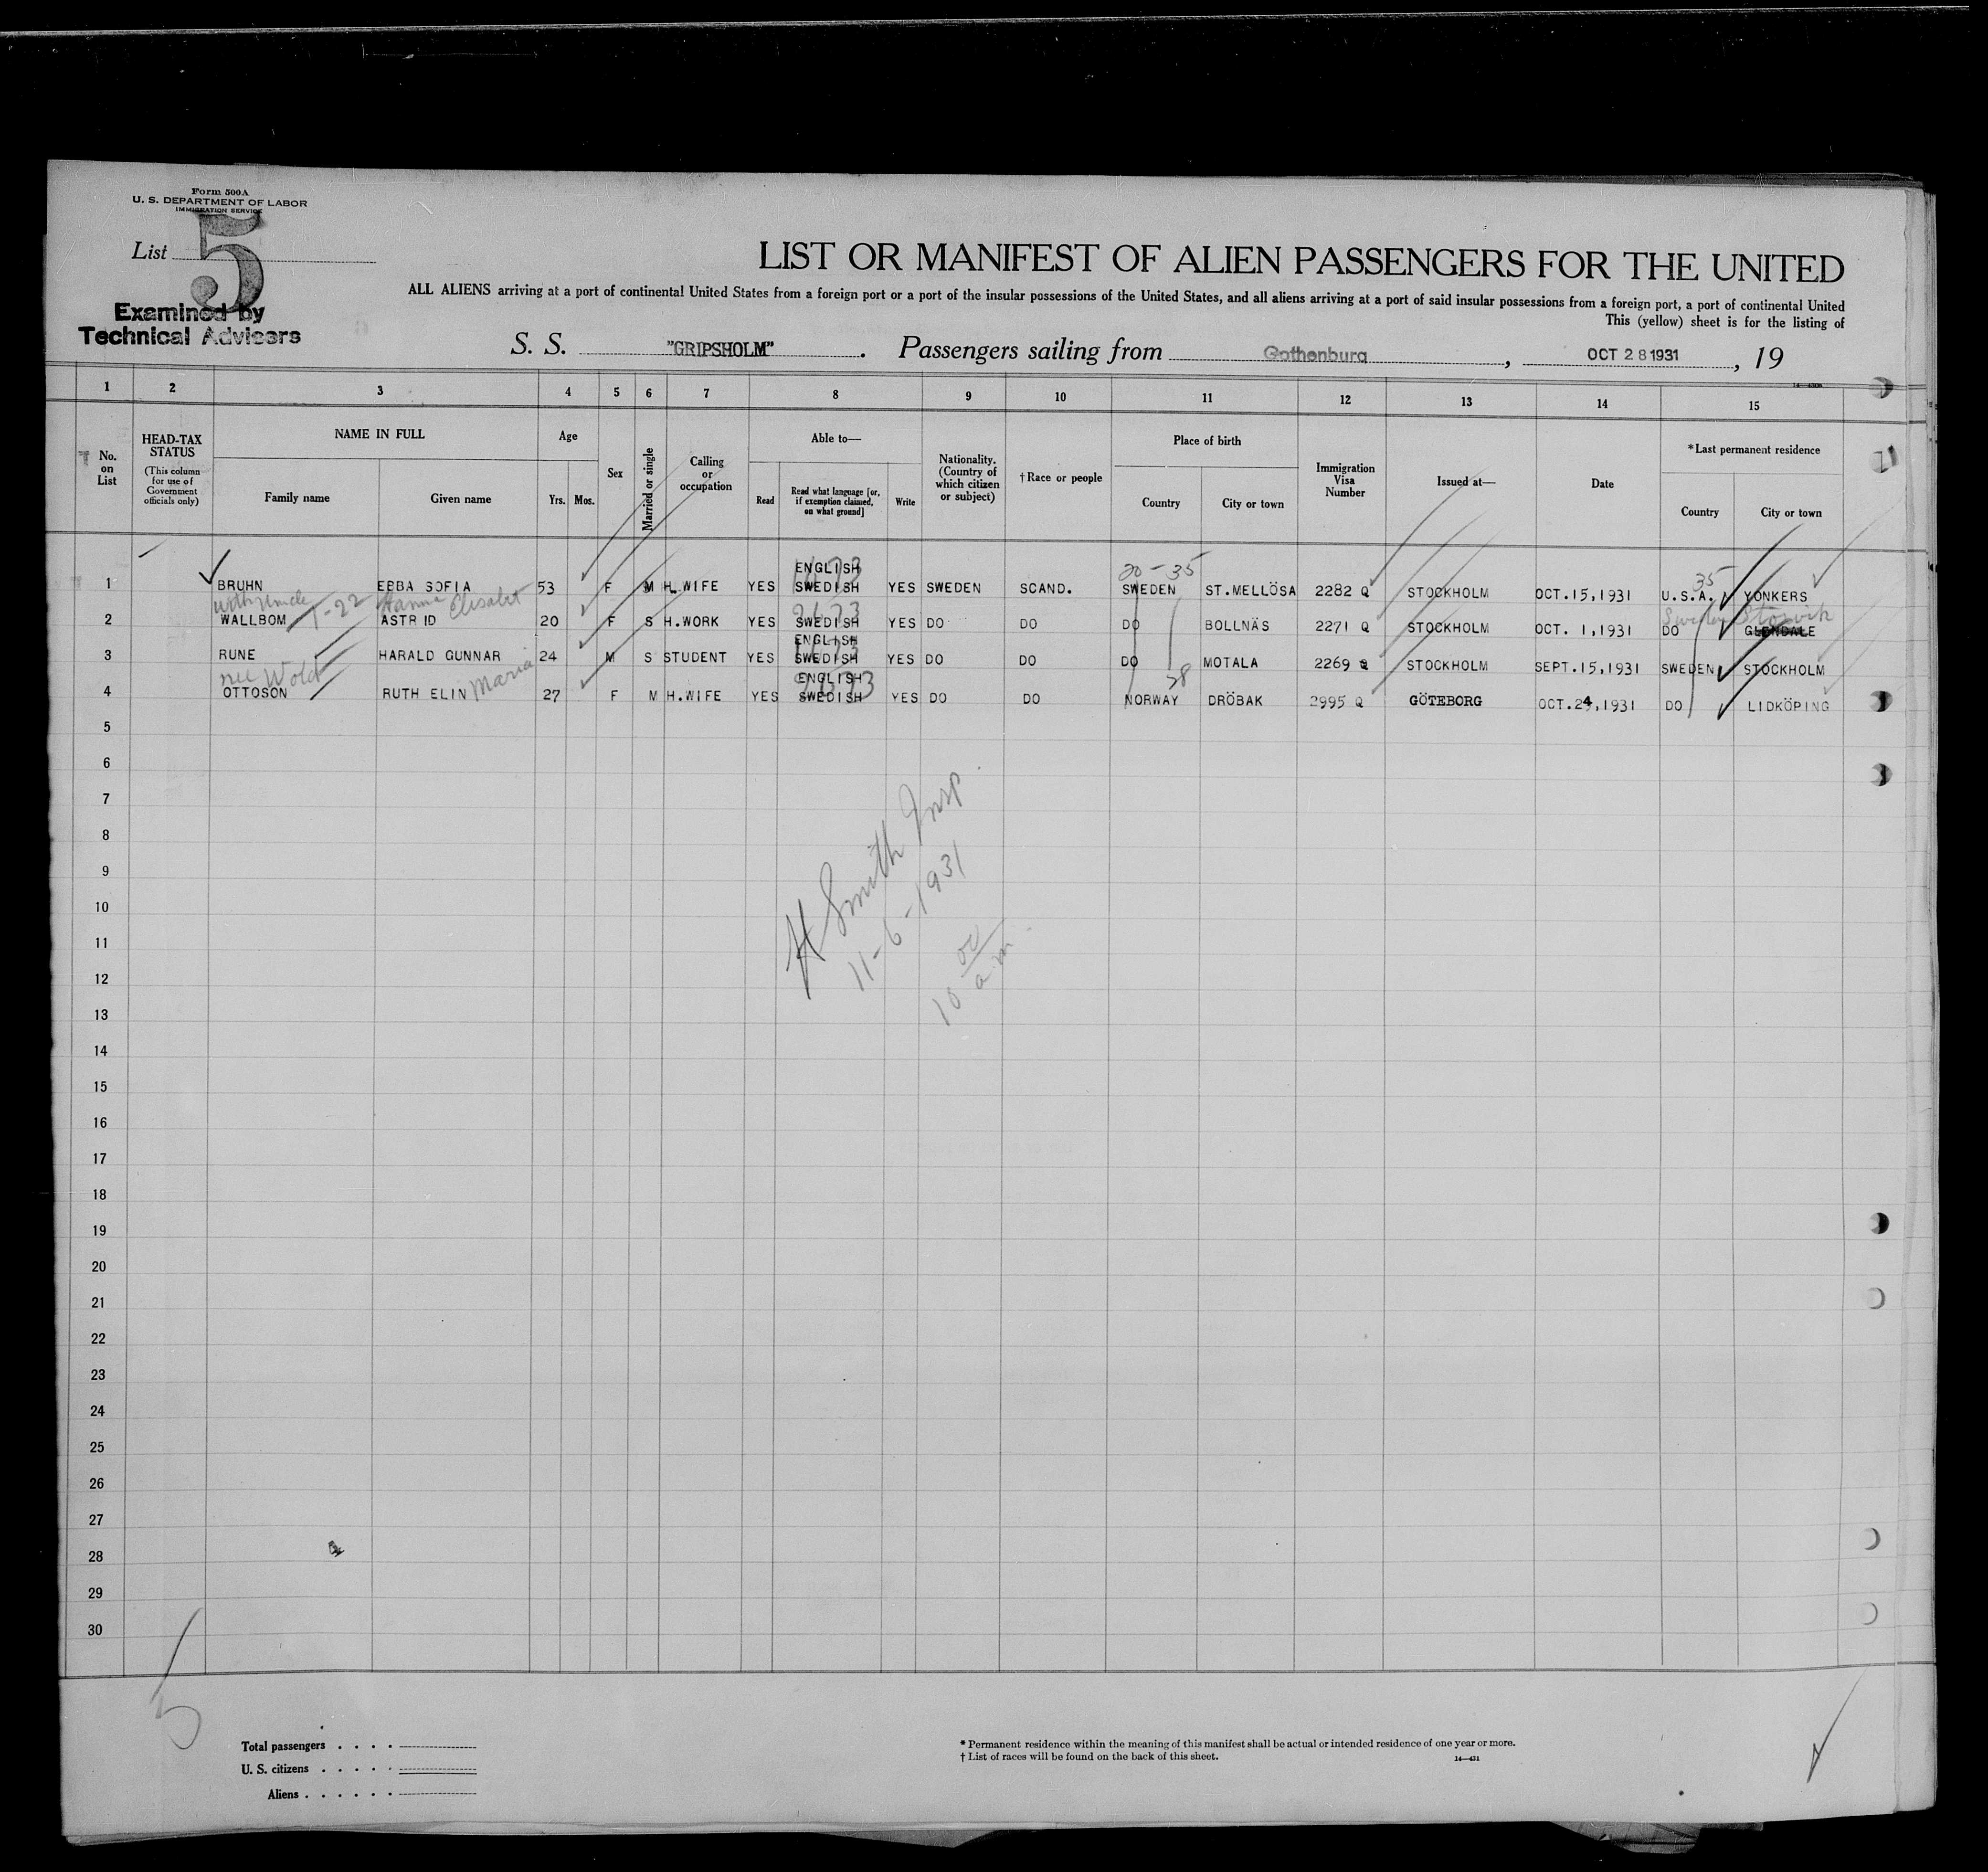 Form 500A
U. S. DEPARTMENT OF LABOR
IMMIGRATION SERVICE
List 5
Examined by
Technical Advisers
LIST OR MANIFEST OF ALIEN PASSENGERS FOR THE UNITED
ALL ALIENS arriving at a port of continental United States from a foreign port or a port of the insular possessions of the United States, and all aliens arriving at a port of said insular possessions from a foreign port, a port of continental United
This (yellow) sheet is for the listing of
S. S. "GRIPSHOLM" . Passengers sailing from Gothenburg , OCT 28 1931 , 19
1 2 3 4 5 6 7 8 9 10 11 12 13 14 15
No. on List
HEAD-TAX STATUS
(This column for use of Government officials only)
NAME IN FULL
Family name Given name
Age
Yrs. Mos.
Sex
Married or single
Calling or occupation
Able to—
Read Read what language [or, if exemption claimed, on what ground] Write
Nationality. (Country of which citizen or subject)
†Race or people
Place of birth
Country City or town
Immigration Visa Number
Issued at—
Date
*Last permanent residence
Country City or town
20-35 35
ENGLISH
1 BRUHN EBBA SOFIA 53 F M H.WIFE YES SWEDISH YES SWEDEN SCAND. SWEDEN ST.MELLÖSA 2282 Q STOCKHOLM OCT.15,1931 U.S.A. YONKERS
with uncle 1-22 Hanna Elisabet Storvik
2 WALLBOM ASTRID 20 F S H.WORK YES SWEDISH YES DO DO DO BOLLNÄS 2271 Q STOCKHOLM OCT. 1,1931 DO GLENDALE
ENGLISH
3 RUNE HARALD GUNNAR 24 M S STUDENT YES SWEDISH YES DO DO DO MOTALA 2269 Q STOCKHOLM SEPT.15,1931 SWEDEN STOCKHOLM
nee Wold Maria ENGLISH 28
4 OTTOSON RUTH ELIN 27 F M H.WIFE YES SWEDISH YES DO DO NORWAY DRÖBAK 2995 Q GÖTEBORG OCT.24,1931 DO LIDKÖPING
5
6
7
8
9
10
11
12
13
14
15
16
17
18
19
20
21
22
23
24
25
26
27
28
29
30
H Smith Insp
11-6-1931
10 00 a.m.
5
Total passengers
U. S. citizens
Aliens
* Permanent residence within the meaning of this manifest shall be actual or intended residence of one year or more.
† List of races will be found on the back of this sheet.
14—431